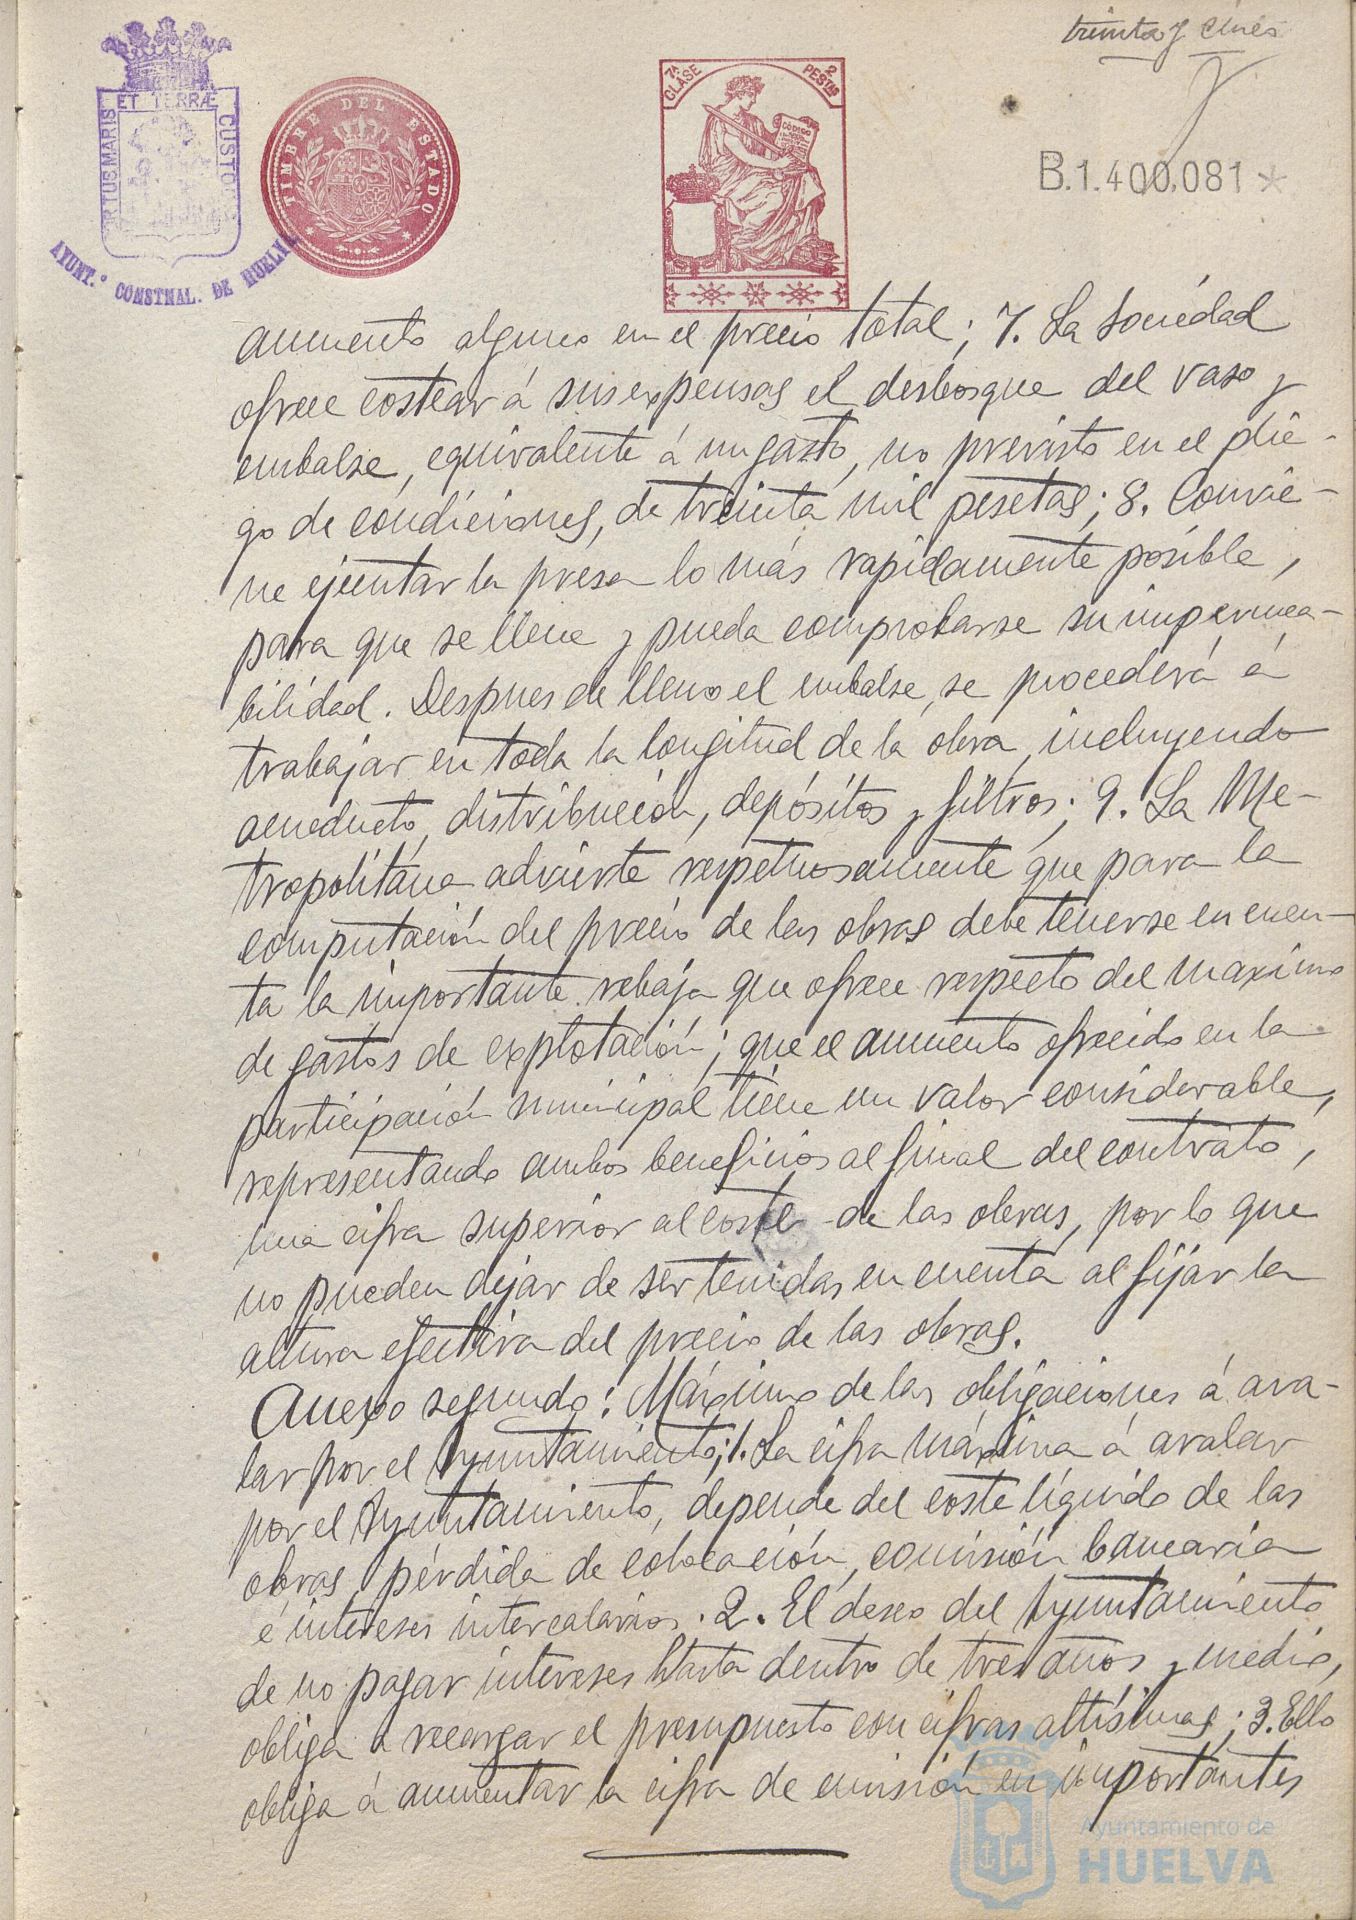 treinta y cinco
PORTUS MARIS ET TERRÆ CUSTODIA
AYUNT.º CONSTNAL. DE HUELVA
TIMBRE DEL ESTADO
7ª CLASE 2 PESTAS
CÓDIGO
B.1.400.081*
aumento alguno en el precio total; 7. La Sociedad
ofrece costear á sus expensas el desbosque del vaso y
embalse, equivalente á un gasto, no previsto en el plie-
go de condiciones, de treinta mil pesetas; 8. Convie-
ne ejecutar la presa lo más rapidamente posible,
para que se llene y pueda comprobarse su impermea-
bilidad. Despues de lleno el embalse, se procederá á
trabajar en toda la longitud de la obra, incluyendo
acueducto, distribución, depósitos y filtros; 9. La Me-
tropolitana advierte respetuosamente que para la
computación del precio de las obras debe tenerse en cuen-
ta la importante rebaja que ofrece respecto del maximo
de gastos de explotación; que el aumento ofrecido en la
participación municipal tiene un valor considerable,
representando ambos beneficios al final del contrato,
una cifra superior al coste de las obras, por lo que
no pueden dejar de ser tenidas en cuenta al fijar la
altura efectiva del precio de las obras.
Anexo segundo: Máximo de las obligaciones á ava-
lar por el Ayuntamiento; 1. La cifra máxima á avalar
por el Ayuntamiento, depende del coste líquido de las
obras, pérdida de colocación, comisión bancaria
é intereses intercalarios. 2. El deseo del Ayuntamiento
de no pagar intereses hasta dentro de tres años y medio,
obliga a recargar el presupuesto con cifras altísimas; 3. Ello
obliga á aumentar la cifra de emisión en importantes
Ayuntamiento de
HUELVA